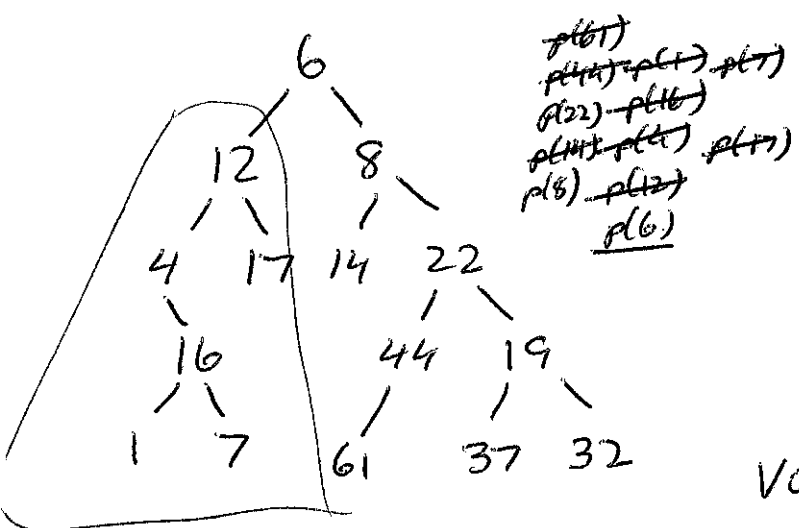 6
12 8
4 17 14 22
16 44 19
1 7 61 37 32
p(61)
p(44) p(1) p(7)
p(22) p(16)
p(14) p(4) p(17)
p(8) p(12)
p(6)